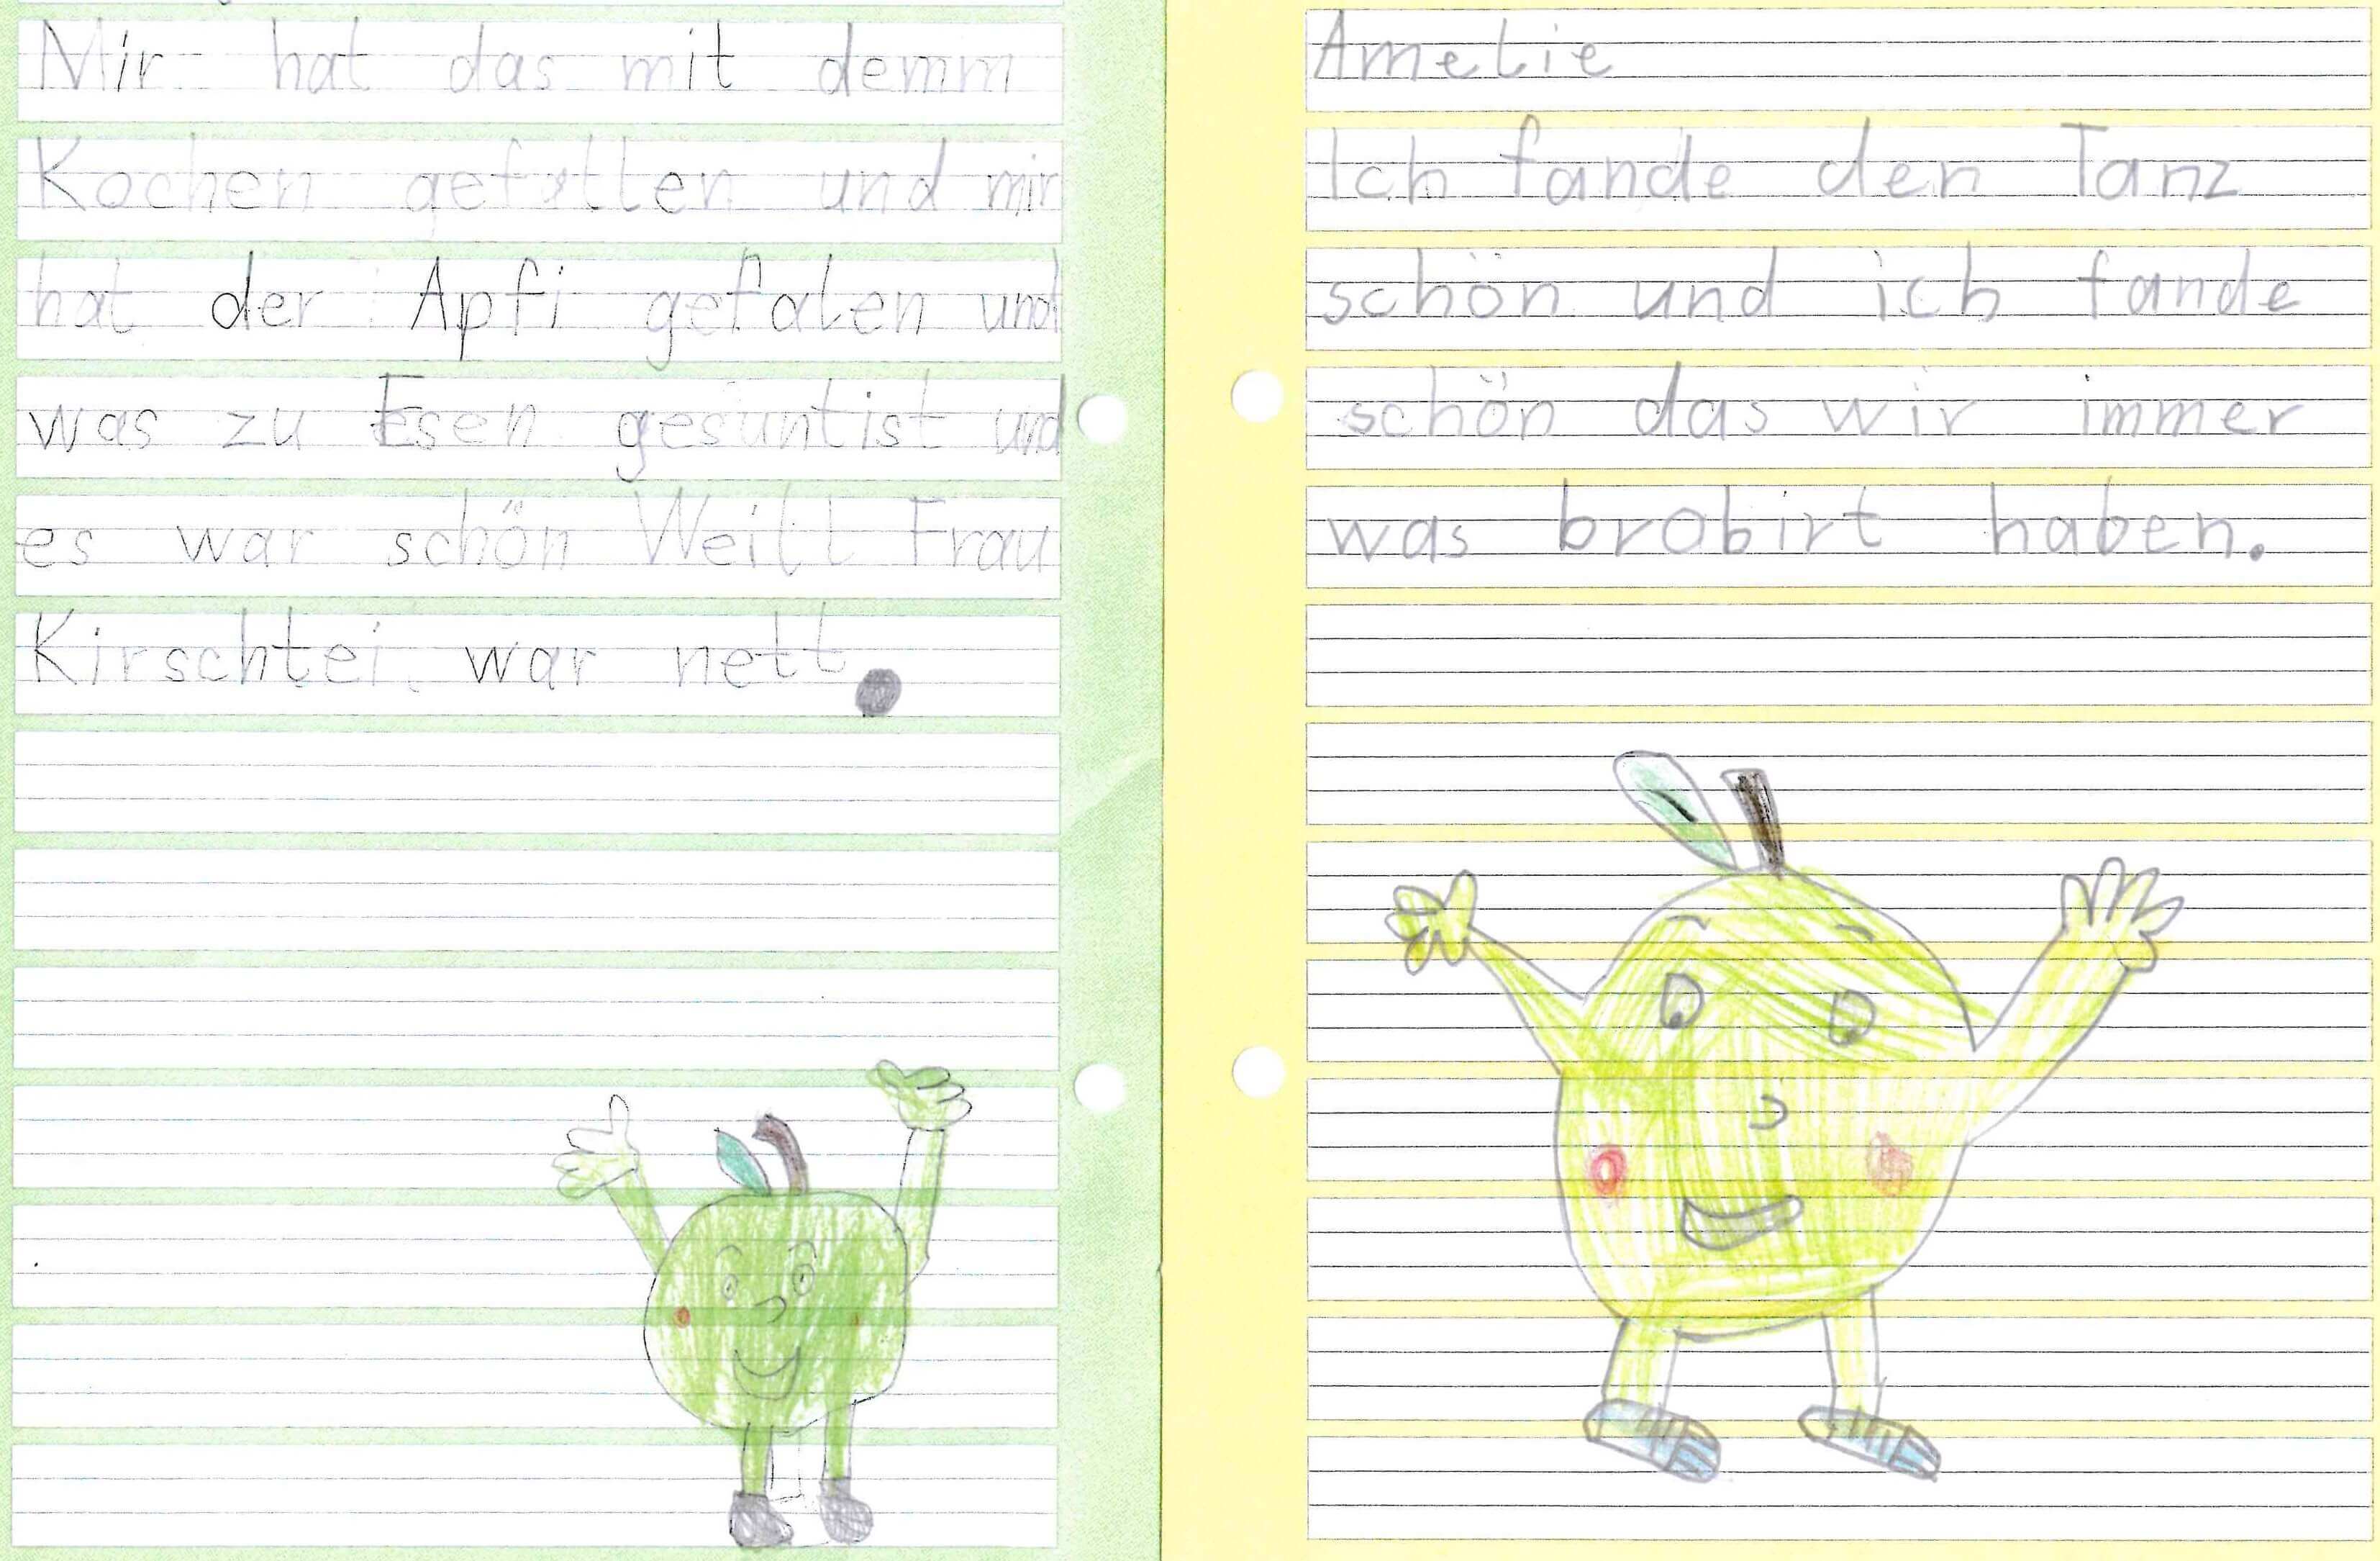 Mir hat das mit demm
Kochen gefallen und mir
hat der Apfi gefalen und
was zu Esen gesuntist und
es war schön Weill Frau
Kirschtei war nett.
Amelie
Ich fande den Tanz
schön und ich fande
schön das wir immer
was brobirt haben.